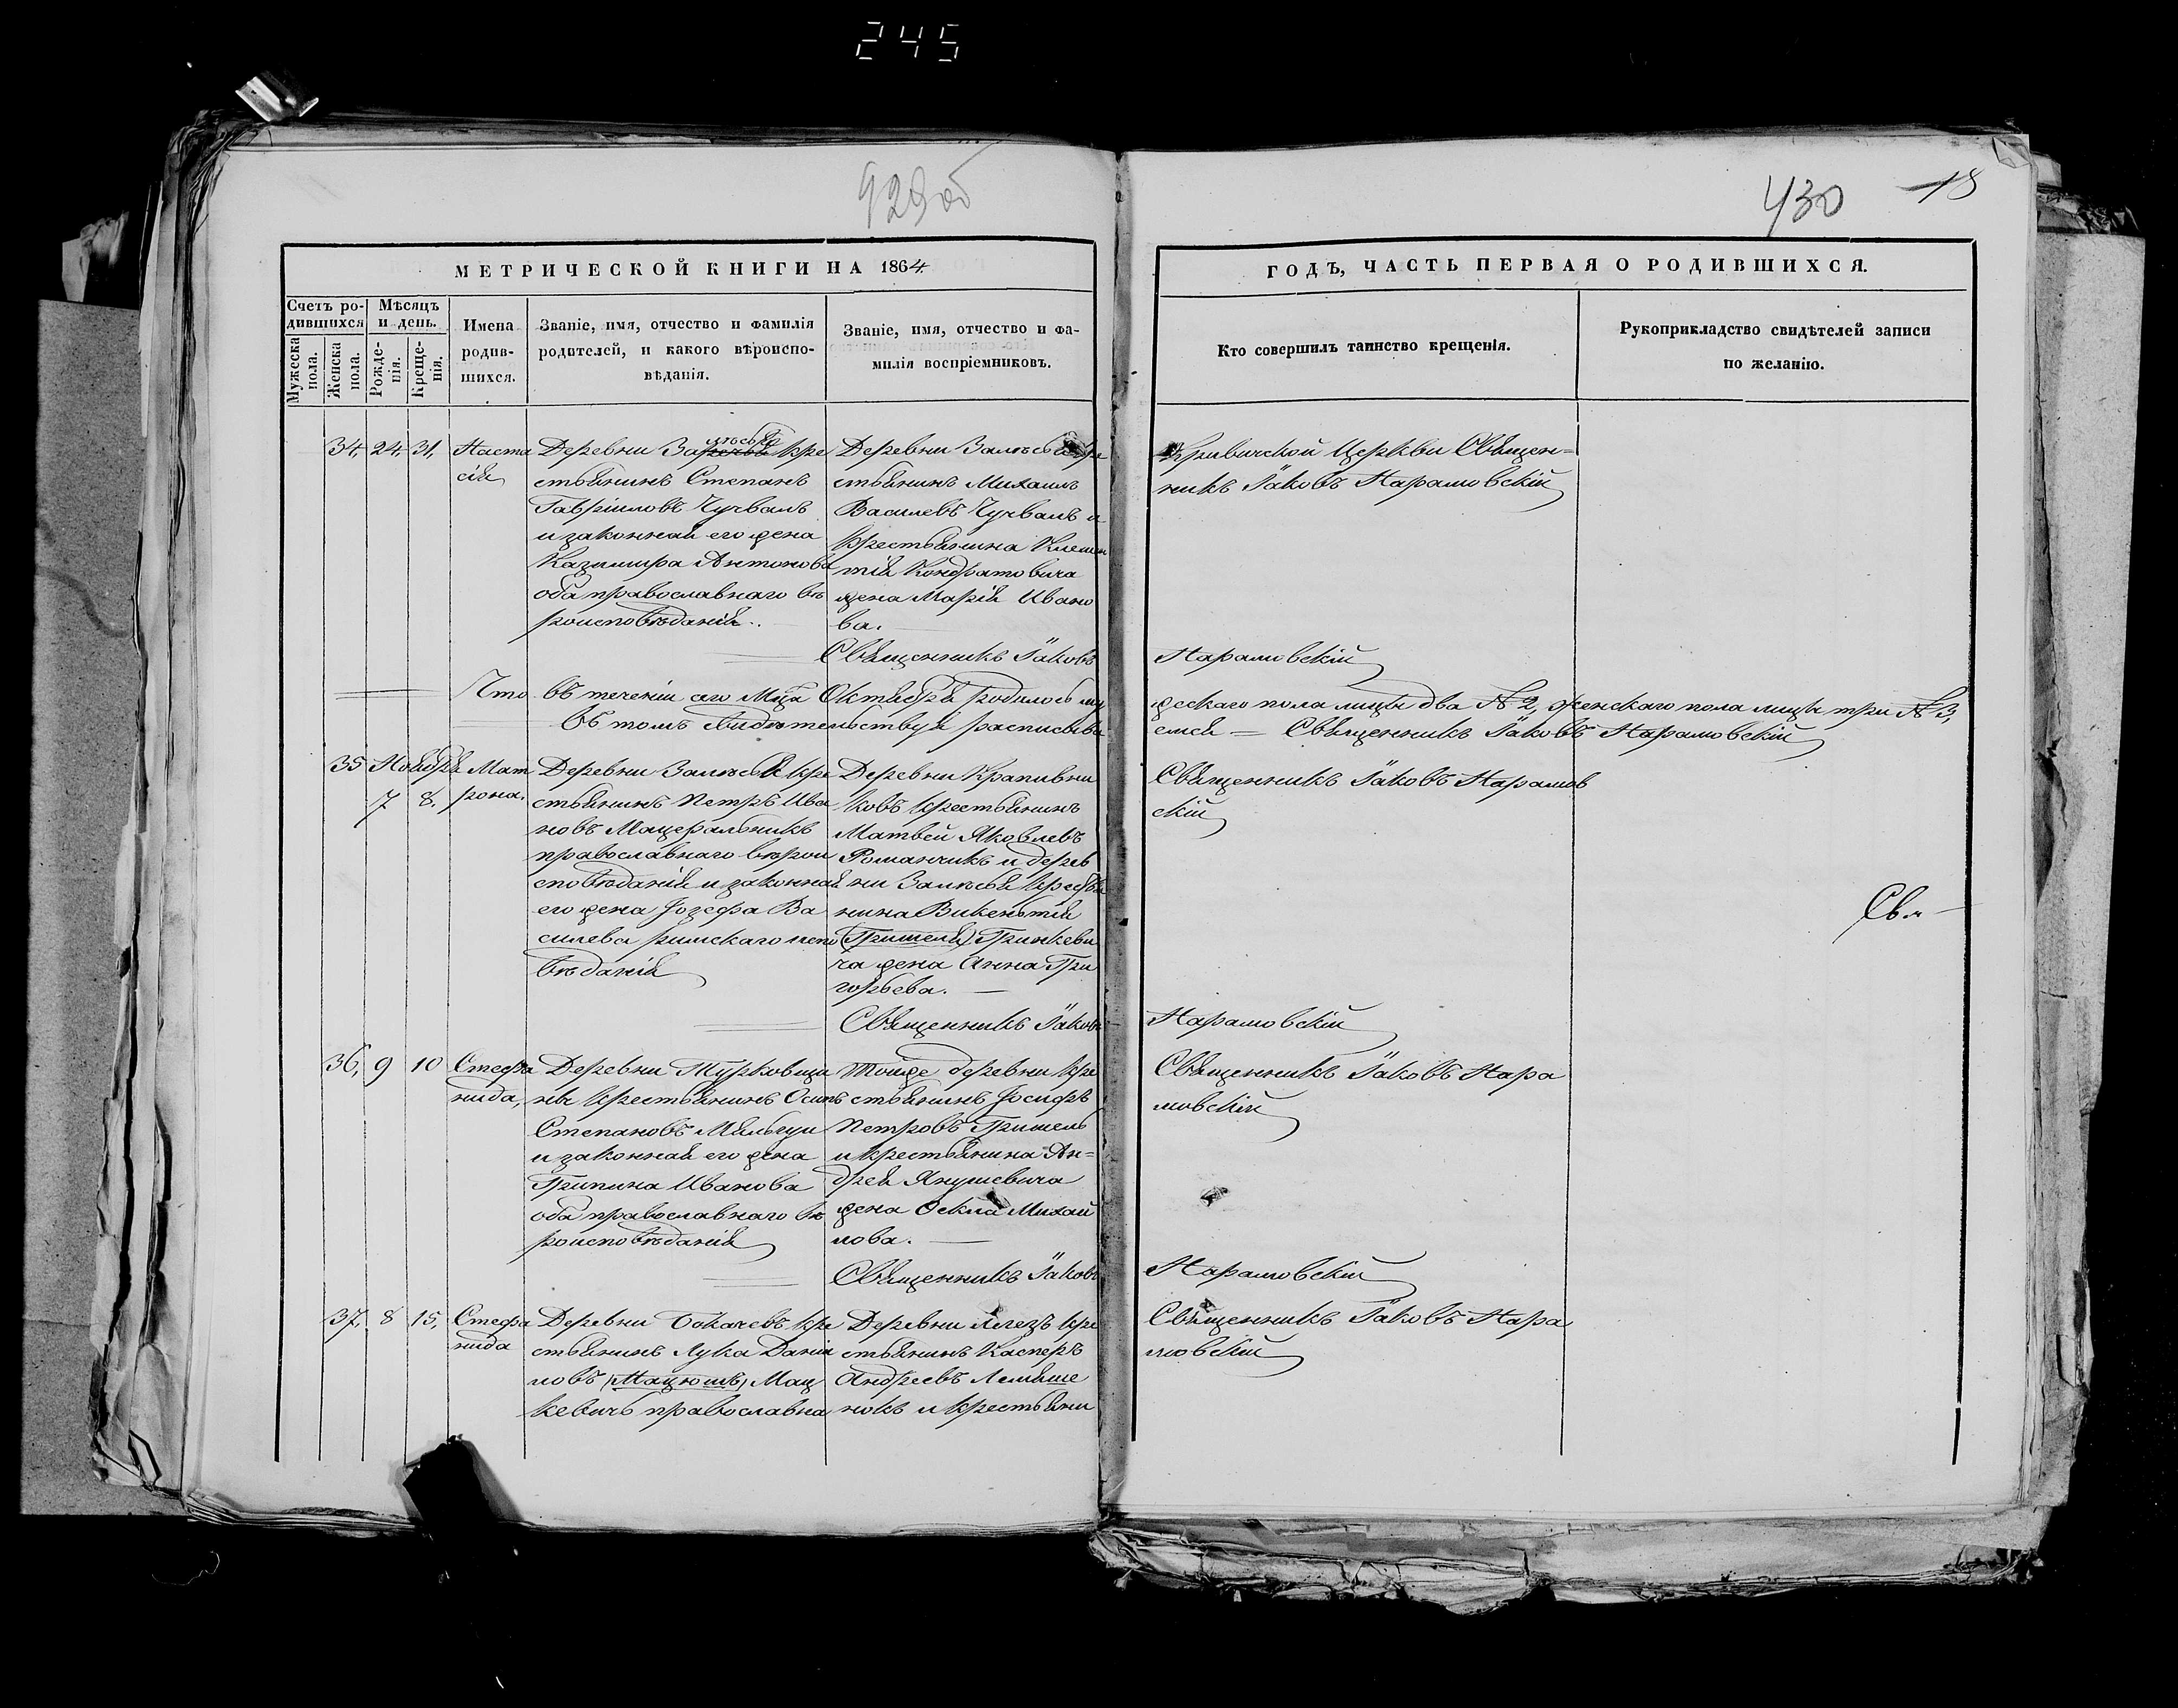 245
929об
430 18
МЕТРИЧЕСКОЙ КНИГИ НА 1864
ГОДЪ, ЧАСТЬ ПЕРВАЯ О РОДИВШИХСЯ.
Счетъ ро-
дившихся
Мужеска
пола.
Женска
пола.
Мѣсяцъ
и день.
Рожде-
нія.
Креще-
нія.
Имена
родив-
шихся.
Званіе, имя, отчество и фамилія
родителей, и какого вѣроиспо-
вѣданія.
Званіе, имя, отчество и фа-
милія воспріемниковъ.
Кто совершилъ таинство крещенія.
Рукоприкладство свидѣтелей записи
по желанію.
34, 24, 31,
Наста
сія
Деревни Залѣсья кре
стьянинъ Степанъ
Гавріиловъ Чучваль
и законная его жена
Казимира Антонова
оба православнаго вѣ
роисповѣданія.
Деревни Залѣсья кре
стьянинъ Михаилъ
Василевъ Чучваль и
крестьянина Клемен
тія Кондратовича
жена Марія Ивано
ва.
Кривичской Церкви Священ=
никъ Іаковъ Нарановскій
Священникъ Іаковъ Нарановскій
Что въ теченіи сего Мца Октября родилось му
жескаго пола лицъ два № 2, женскаго пола лицъ три № 3,
въ томъ свидѣтельствуя расписыва
емся — Священникъ Іаковъ Нарановскій
35 Ноября
7 8,
Мат
рона.
Деревни Залѣсья кре
стьянинъ Петръ Ива
новъ Мацефальникъ
православнаго вѣрои
сповѣданія и законная
его жена Іозефа Ва
силева римскаго испо
вѣданія
Деревни Крапивни
ковъ крестьянинъ
Матвей Яковлевъ
Романчикъ и дерев
ни Залѣсья крестья
нина Викентія
(Гришеля) Гринкеви
ча жена Анна Гри
горьева.
Священникъ Іаковъ Наранов
скій
Св.
Священникъ Іаковъ Нарановскій
36, 9 10
Стефа
нида,
Деревни Турковщи
ны крестьянинъ Осипъ
Степановъ Мильгуи
и законная его жена
Грипина Иванова
оба православнаго вѣ
роисповѣданія
Тойже деревни кре
стьянинъ Іосифъ
Петровъ Гришель
и крестьянина Ан=
дрея Янушевича
жена Фекла Михай
лова.
Священникъ Іаковъ Нара
новскій
Священникъ Іаковъ Нарановскій
37, 8 15,
Стефа
нида
Деревни Бокачевъ кре
стьянинъ Лука Даніи
ловъ (Мацюшъ) Мац
кевичъ православна
Деревни Легезъ кре
стьянинъ Касперъ
Андреевъ Лемеше
нокъ и крестьяни
Священникъ Іаковъ Нара
новскій